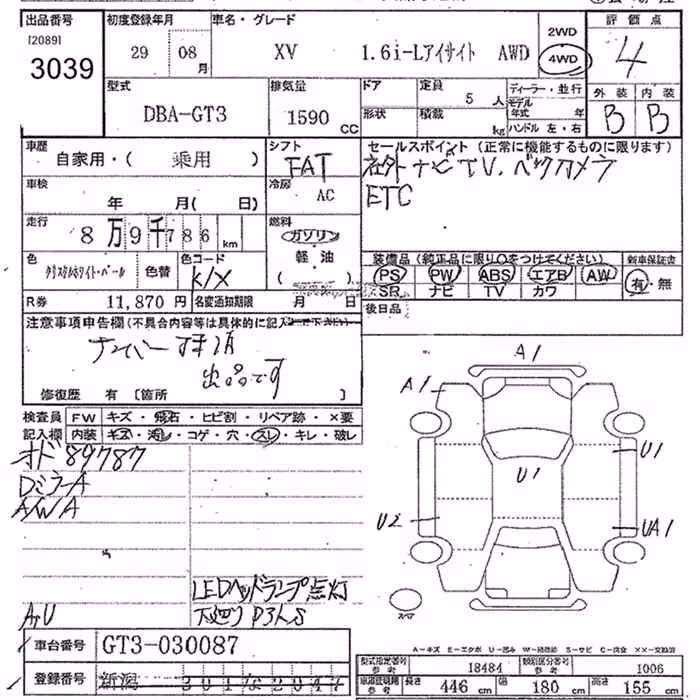 出品番号 初度登録年月 車名・グレード 2WD 評価点
[2089]
3039 29 08月 XV 1.6i-Lアイサイト AWD 4WD 4
型式 排気量 ドア 定員 ディーラー・並行 外装 内装
5人 モデル
DBA-GT3 1590 CC 形状 積載 kg 年式 年 B B
ハンドル 左・右
車歴 シフト セールスポイント (正常に機能するものに限ります)
自家用・( 乗用 ) FAT 社外ナビTV.バックカメラ
車検 冷房 ETC
年 月( 日) AC
走行 燃料
8万9千786km ガソリン
軽油 装備品 (純正品に限り〇をつけてください) 新車保証書
色 色替 色コード ( ) PS PW ABS エアB AW 有・無
クリスタルホワイト・パール K/X SR ナビ TV カワ
R券 11,870 円 名変通知期限 月 日 後日品
注意事項申告欄
ナンバー
出品です
修復歴 有 [箇所 ]
検査員 FW キズ・飛石・ヒビ割・リペア跡・×要
記入欄 内装 キズ・汚レ・コゲ・穴・スレ・キレ・破レ
A1
A1
オド89787
DミラーA
A/W A
U1
U1
U2
UA1
LEDヘッドランプ点灯
スペア
車台番号 GT3-030087
A-キズ E-エクボ U-凹み W-補修跡 S-サビ C-腐食 ××-交換済
型式指定番号 参考 18484 類別区分番号 参考 1006
登録番号 新潟
車両証明用 参考 長さ 446 cm 幅 180 cm 高さ 155 cm